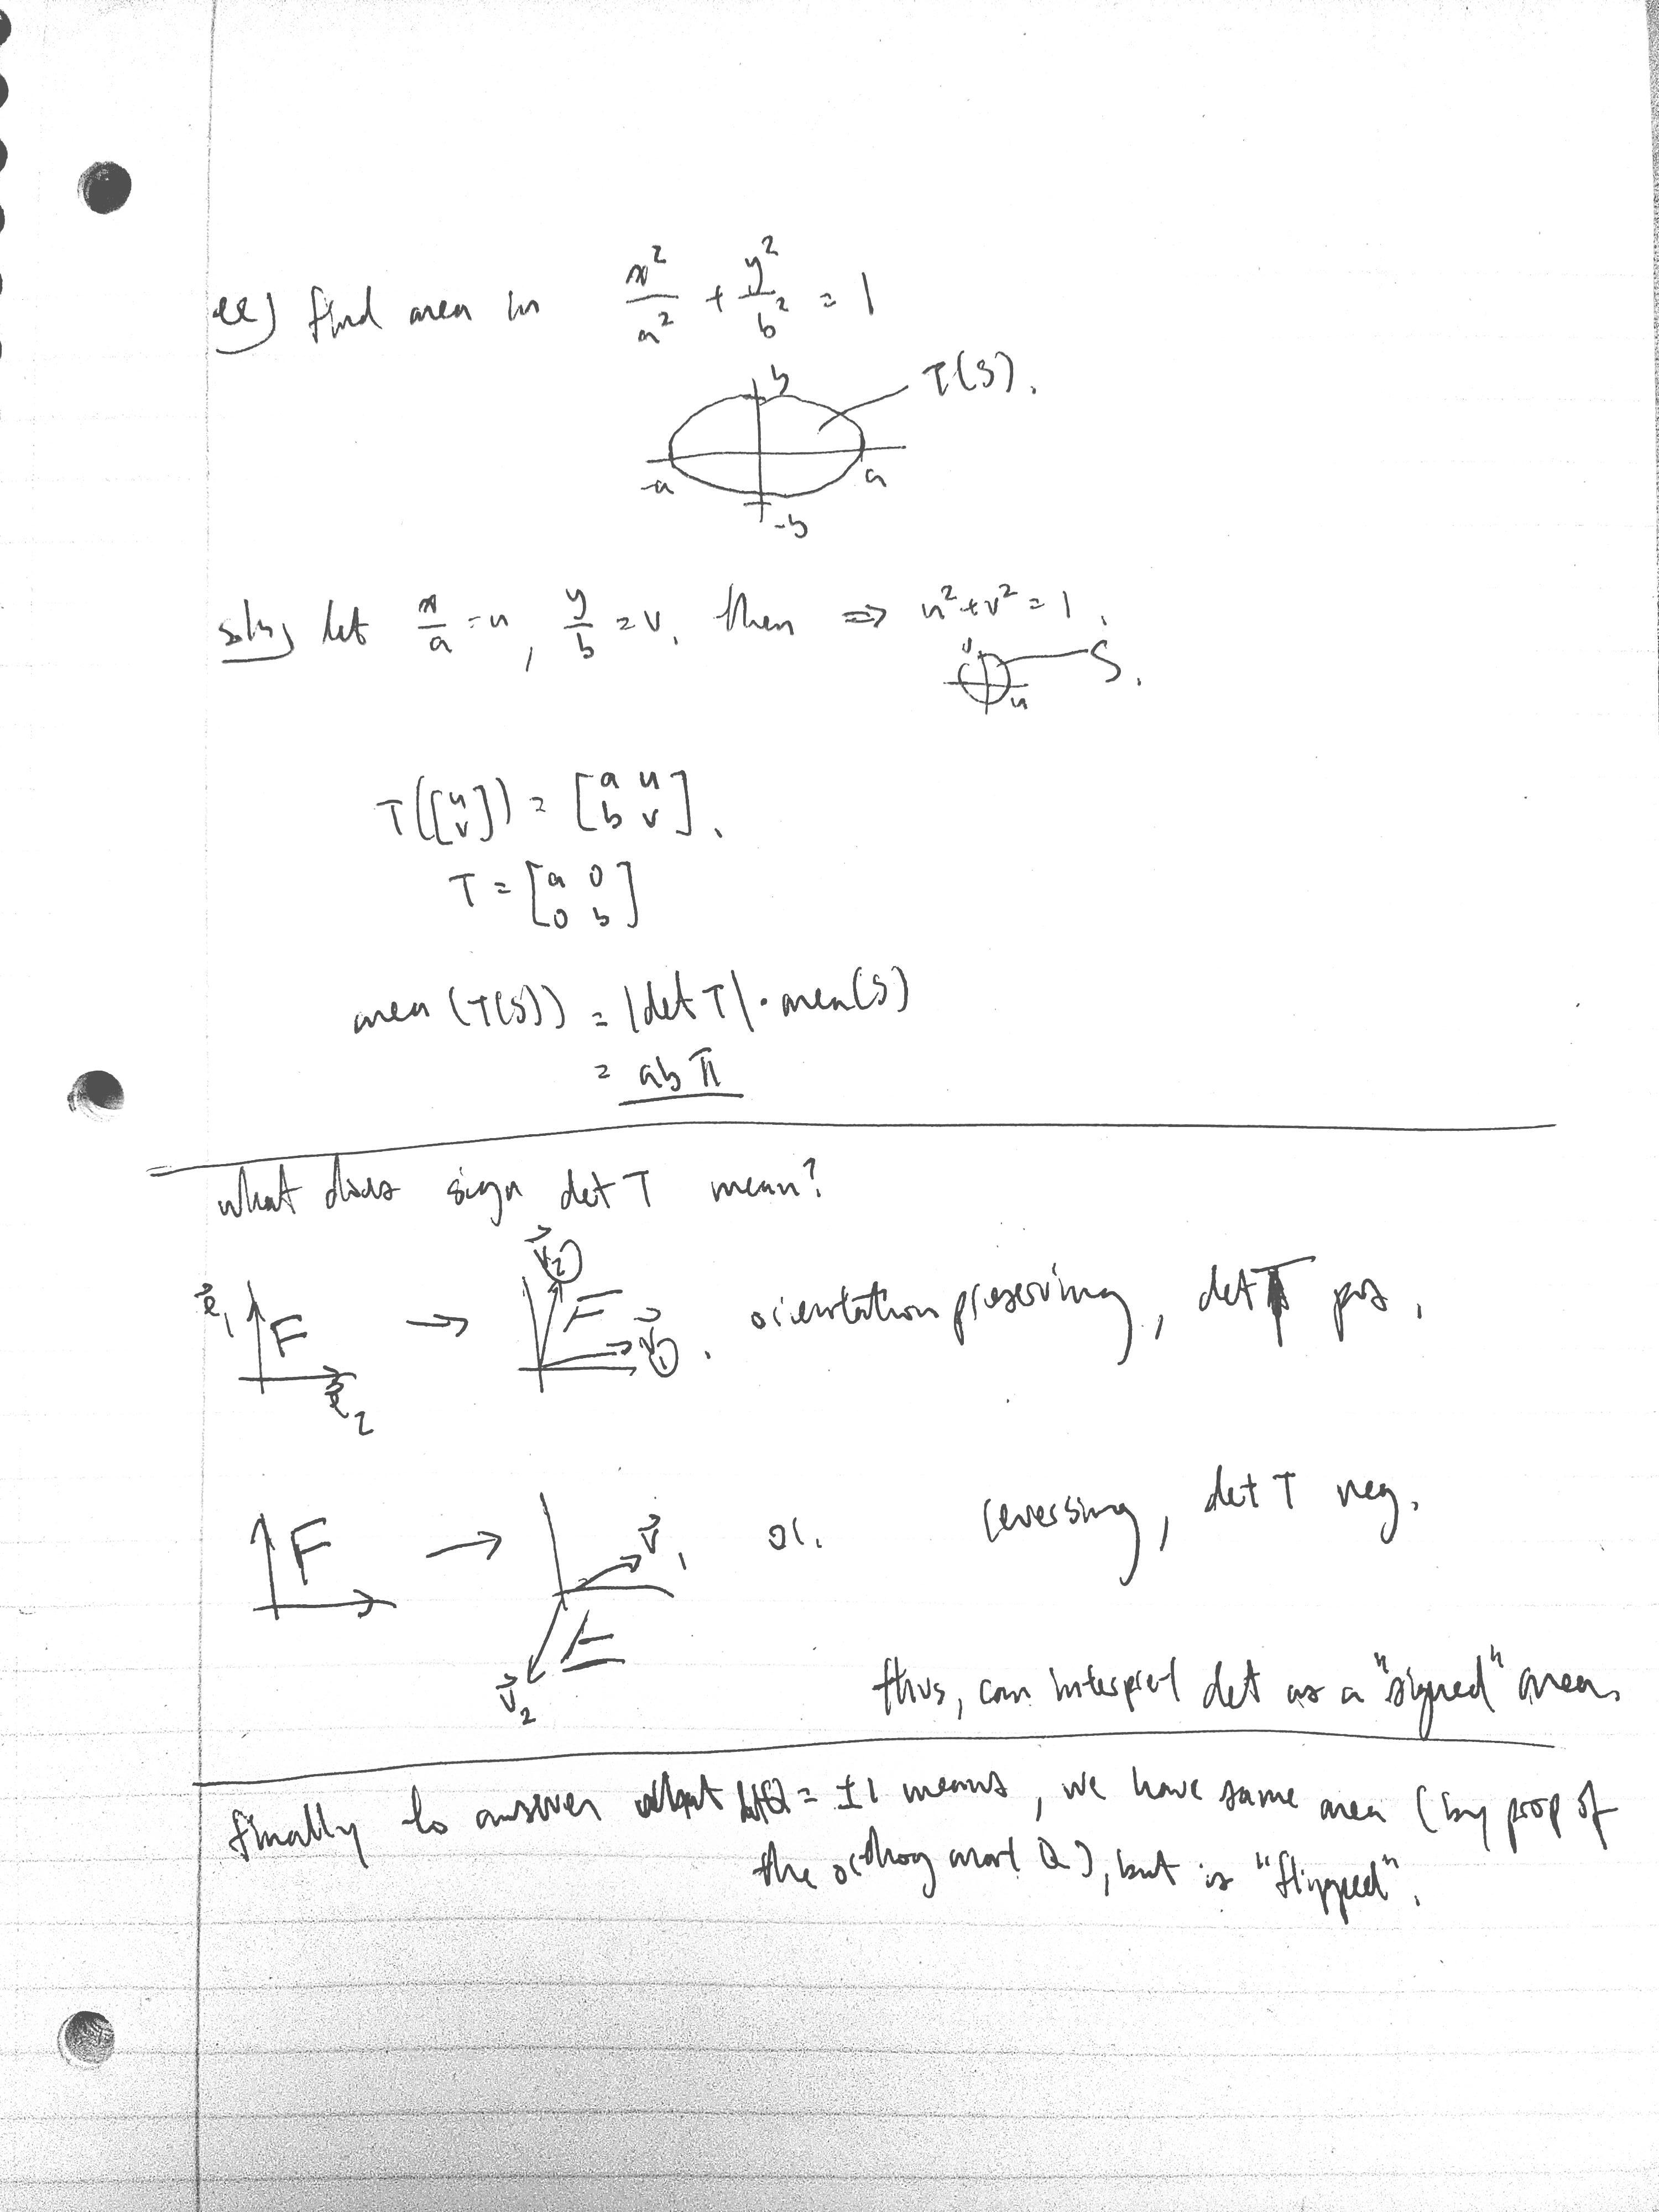 ex) find area in x²/a² + y²/b² = 1
b
T(S).
-a a
-b
soln) let x/a = u, y/b = v. then ⇒ u²+v² = 1.
v
S.
u
T([u v]) = [a u b v].
T = [a 0 0 b]
area (T(S)) = |det T| · area(S)
= ab π
what does sign det T mean?
e⃗₁ F e⃗₂ → v⃗₂ F v⃗₁. orientation preserving, det T pos.
F → v⃗₁ or. reversing, det T neg.
F
v⃗₂
thus, can interpret det as a "signed" area.
finally to answer what = ±1 means, we have same area (by prop of
the orthog mat Q), but is "flipped".